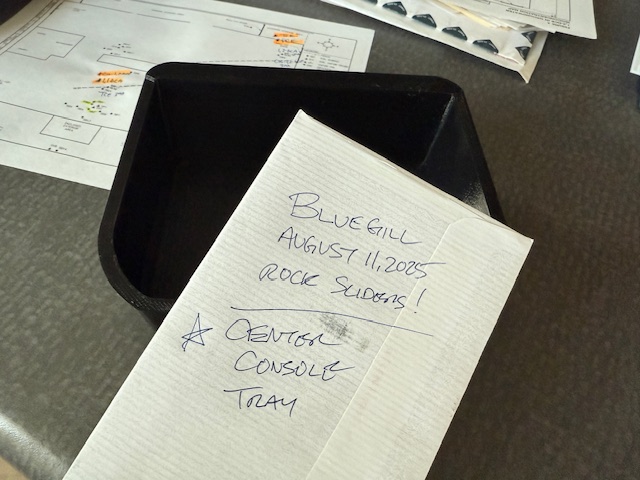 BLUEGILL
AUGUST 11, 2025
ROCK SLIDERS!
☆ CENTER
CONSOLE
TRAY